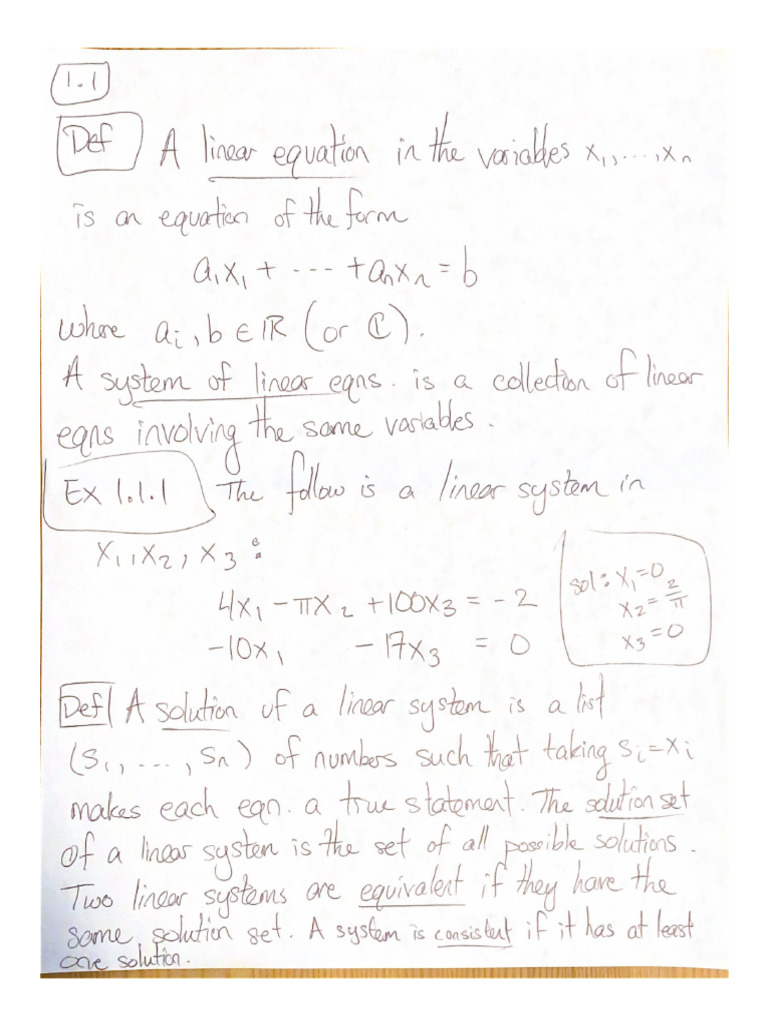 1.1
Def A linear equation in the variables x₁,...,xₙ
is an equation of the form
a₁x₁ + ··· + aₙxₙ = b
where aᵢ, b ∈ ℝ (or ℂ).
A system of linear eqns. is a collection of linear
eqns involving the same variables.
Ex 1.1.1 The follow is a linear system in
x₁, x₂, x₃:
4x₁ - πx₂ + 100x₃ = -2
-10x₁ - 17x₃ = 0
sol: x₁=0
x₂= 2/π
x₃=0
Def A solution of a linear system is a list
(s₁, ..., sₙ) of numbers such that taking sᵢ=xᵢ
makes each eqn. a true statement. The solution set
of a linear system is the set of all possible solutions.
Two linear systems are equivalent if they have the
same solution set. A system is consistent if it has at least
one solution.